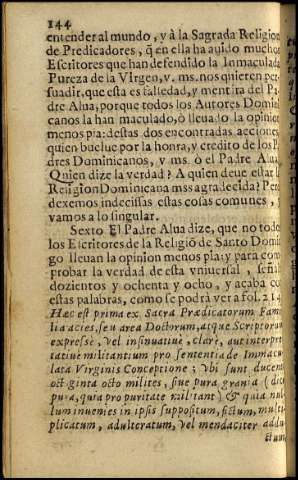 144
entender al mundo, y à la Sagrada Religion
de Predicadores, q̃ en ella ha auido muchos
Escritores que han defendido la Inmaculada
Pureza de la Virgen, v. ms. nos quieren per-
suadir, que esta es falsedad, y mentira del Pa-
dre Alua, porque todos los Autores Domini-
canos la han maculado, ò lleuado la opinion
menos pia: destas dos encontradas acciones
quien buelue por la honra, y credito de los Pa-
dres Dominicanos, v ms. ò el Padre Alua?
Quien dize la verdad? A quien deue estar la
Religion Dominicana mas agradecida? Pero
dexemos indecissas estas cosas comunes, y
vamos a lo singular.
Sexto El Padre Alua dize, que no todos
los Escritores de la Religiõ de Santo Domin-
go lleuan la opinion menos pia; y para com-
probar la verdad de esta vniuersal, señala
dozientos y ochenta y ocho, y acaba con
estas palabras, como se podrà ver a fol. 214.
Hæc est prima ex Sacra Prædicatorum Fami-
lia acies, seu area Doctorum, atque Scriptorum
expresse, vel insinuatiue, clarè, aut interpre-
tatiuè militantium pro sententia de Immacu-
lata Virginis Conceptione; vbi sunt ducenti
octoginta octo milites, siue pura grana (dico
pura, quia pro puritate militant) & quia nul-
lum inuenies in ipsis suppositum, fictum, multi-
plicatum, adulteratum, vel mendaciter addu-